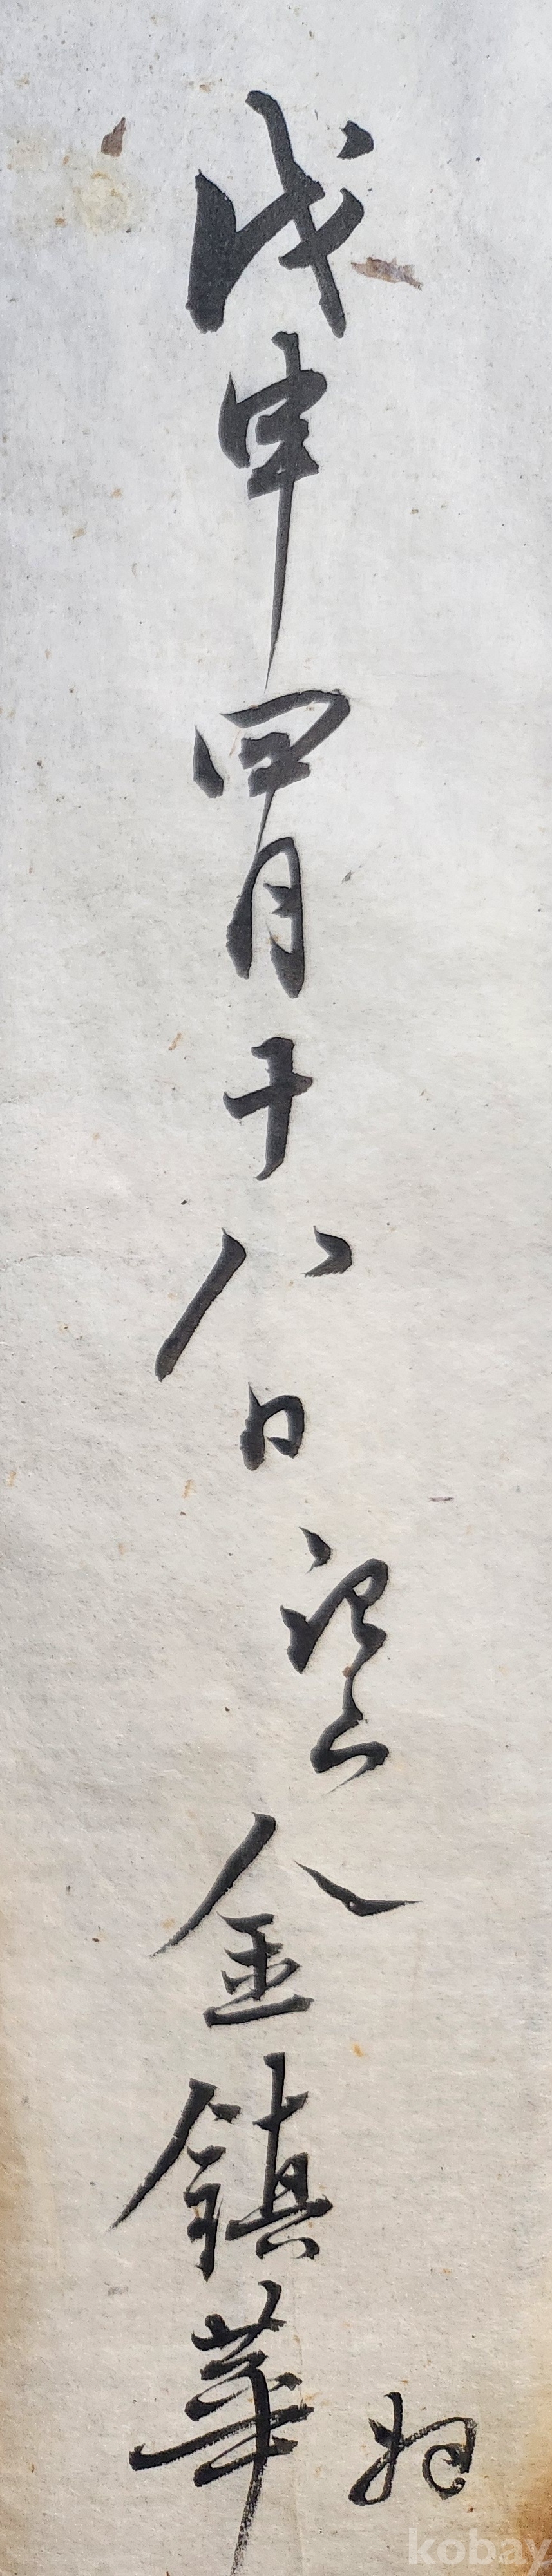 戊申四月十八日 記下 金鎮華
kobay